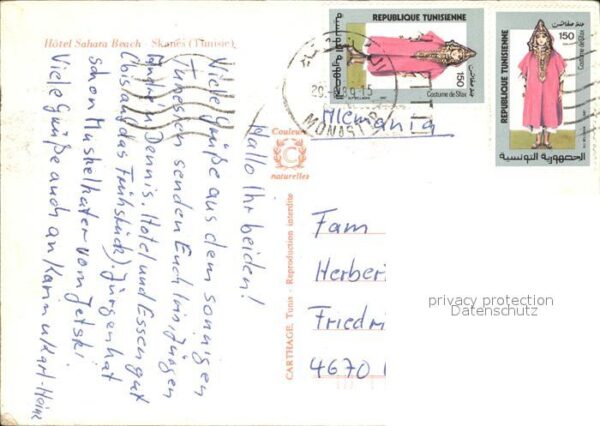 Hôtel Sahara Beach - Skanès (Tunisie)
Hallo Ihr beiden!
Viele Grüße aus dem sonnigen
Tunesien senden Euch
Dennis. Hotel und Essen gut
das Frühstück). Jürgen hat
schon Muskelkater vom Jetski.
Viele Grüße auch an Karin u Karl-Heinz
Couleurs
C
naturelles
CARTHAGE, Tunis - Reproduction interdite
REPUBLIQUE TUNISIENNE
150
Costume de Sfax
الجمهورية التونسية
REPUBLIQUE TUNISIENNE
150
Costume de Sfax
الجمهورية التونسية
MONASTIR
Allemania
Fam
Herber
Friedri
4670
privacy protection
Datenschutz